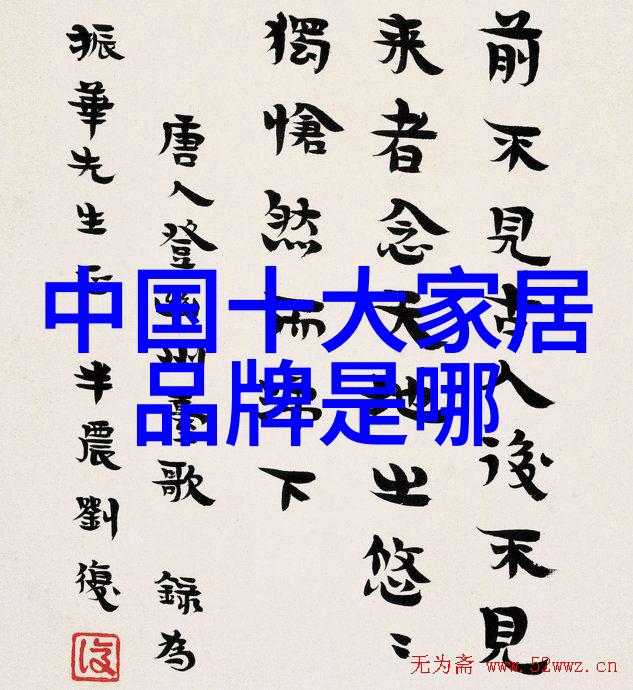 前不見古人後不見
来者念天地之悠〻
獨愴然而涕下
唐人登幽州臺歌 錄為
振華先生 半農劉復
中国十大家居
品牌是哪
无为斋 www.52wwz.cn